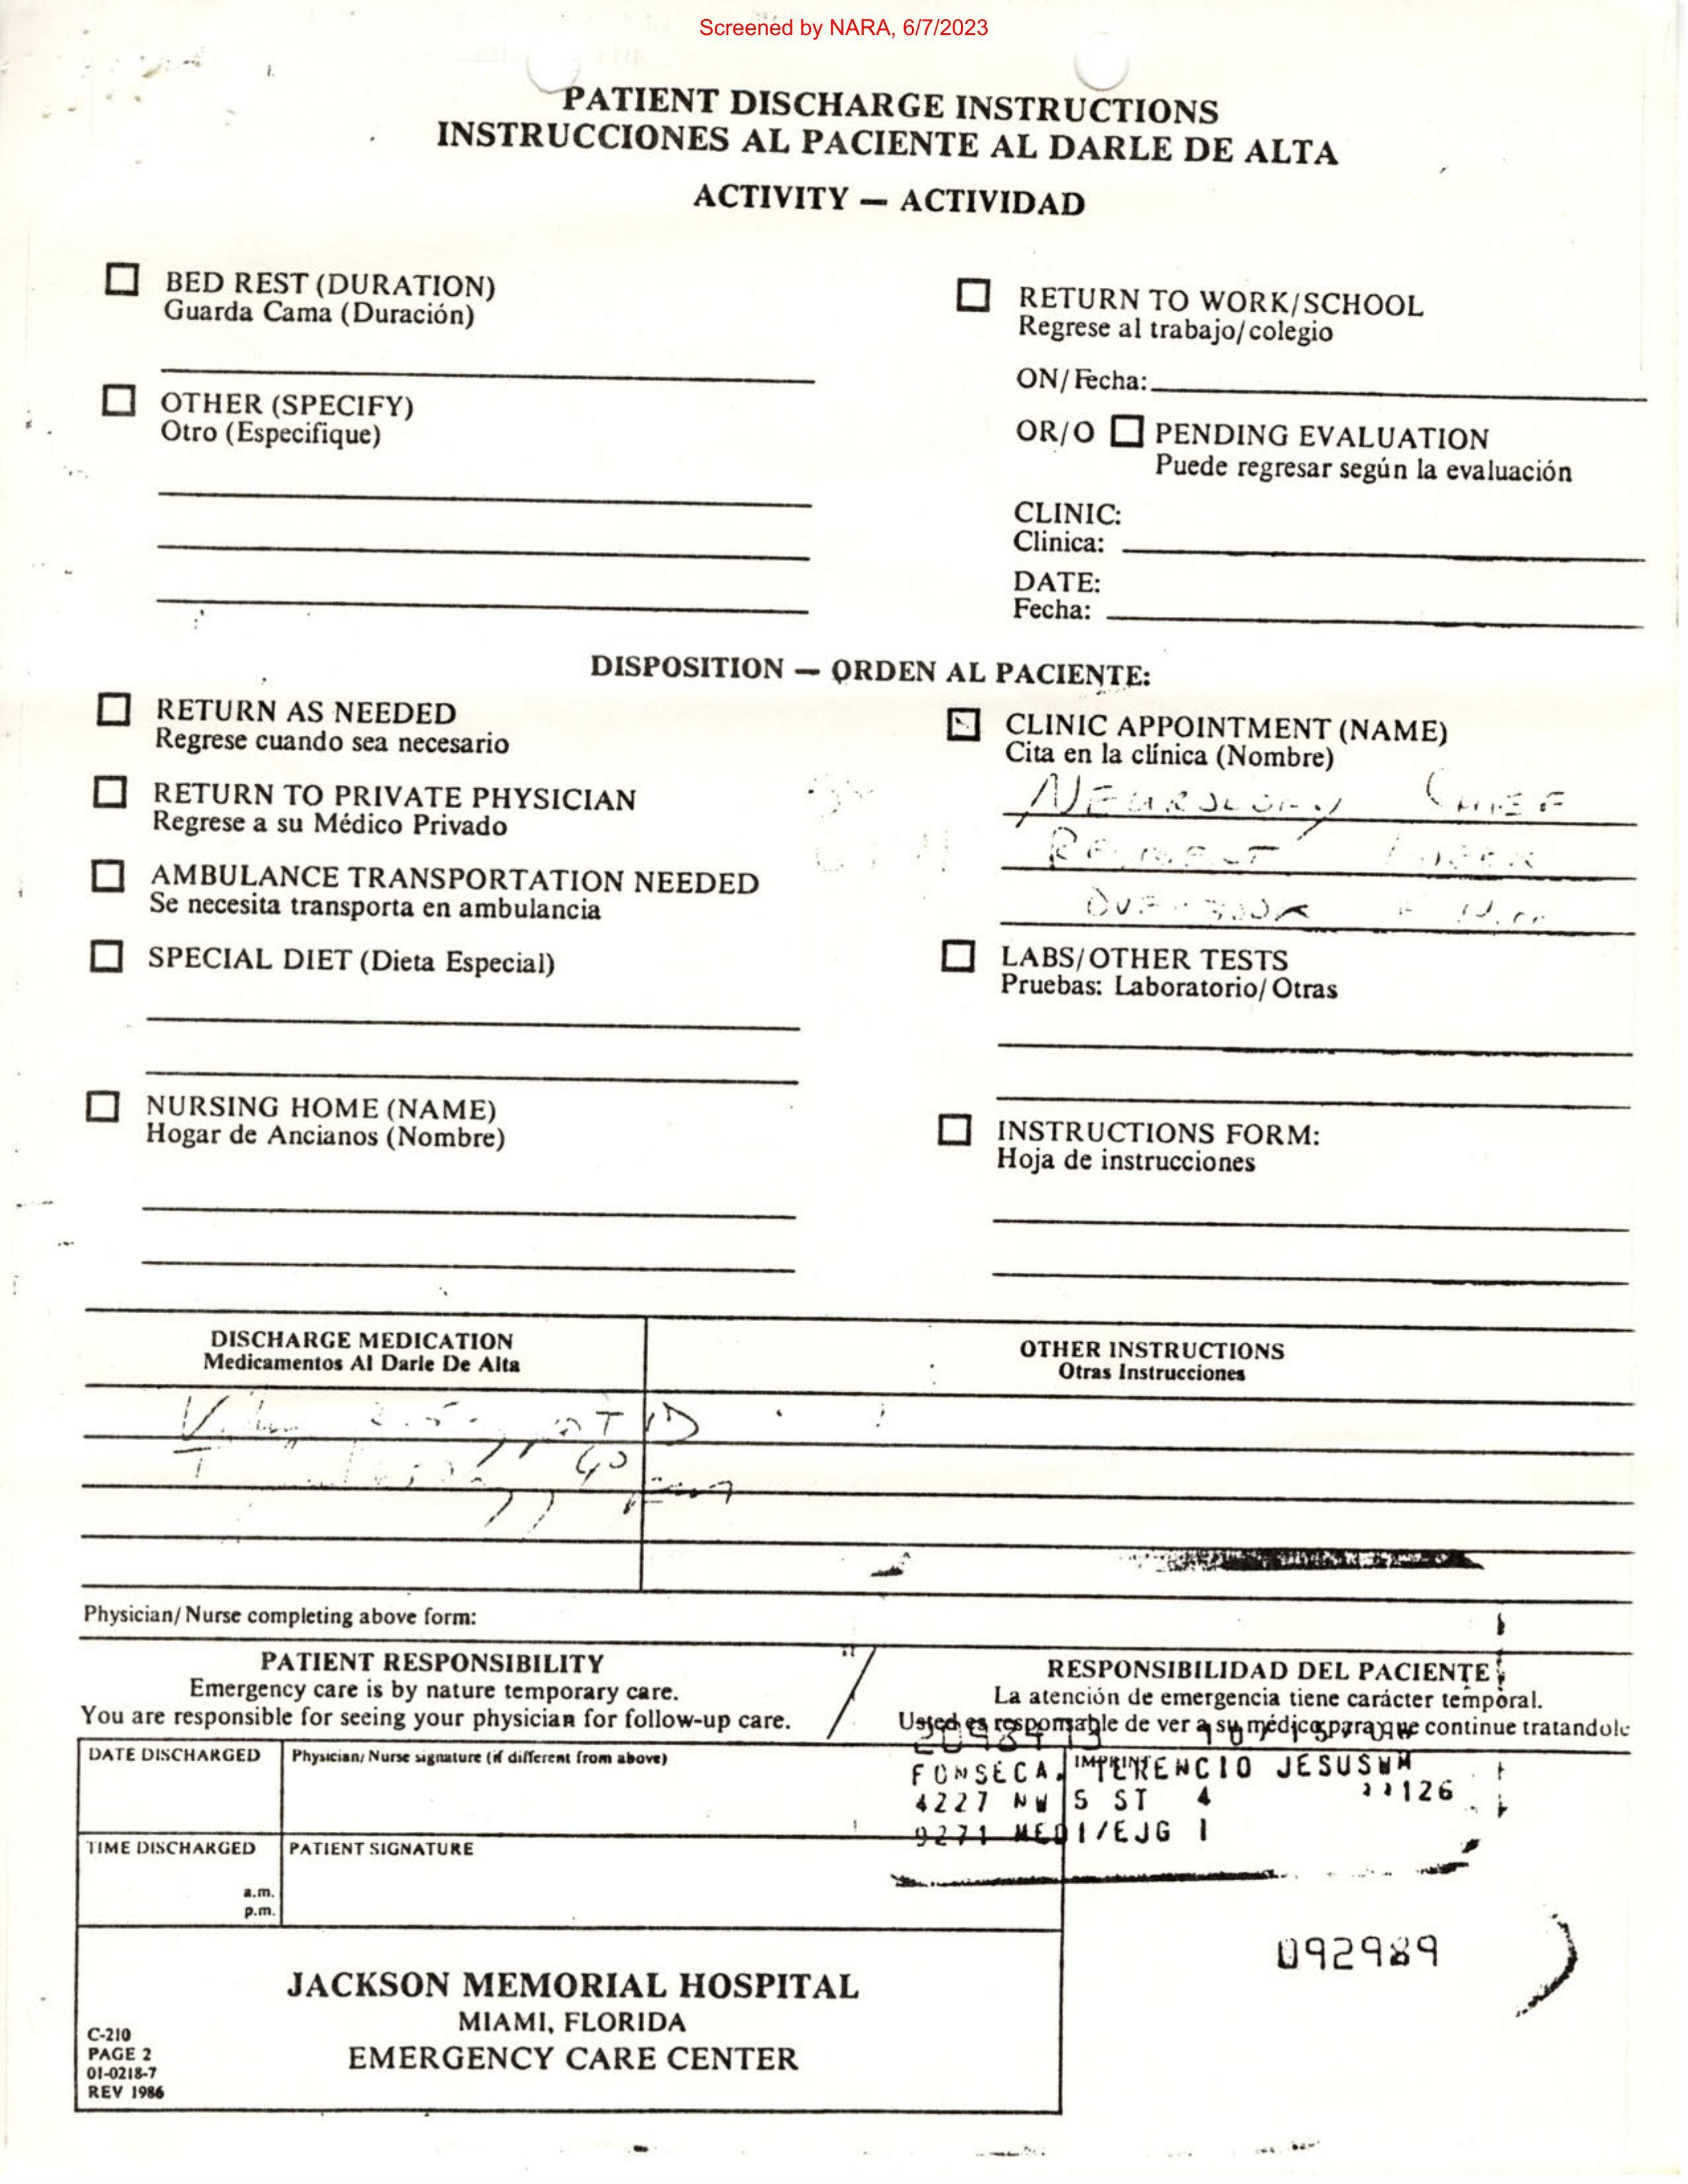 Screened by NARA, 6/7/2023
PATIENT DISCHARGE INSTRUCTIONS
INSTRUCCIONES AL PACIENTE AL DARLE DE ALTA
ACTIVITY — ACTIVIDAD
BED REST (DURATION)
Guarda Cama (Duración)
OTHER (SPECIFY)
Otro (Especifique)
RETURN TO WORK/SCHOOL
Regrese al trabajo/colegio
ON/Fecha:
OR/O PENDING EVALUATION
Puede regresar según la evaluación
CLINIC:
Clinica:
DATE:
Fecha:
DISPOSITION — ORDEN AL PACIENTE:
RETURN AS NEEDED
Regrese cuando sea necesario
RETURN TO PRIVATE PHYSICIAN
Regrese a su Médico Privado
AMBULANCE TRANSPORTATION NEEDED
Se necesita transporta en ambulancia
SPECIAL DIET (Dieta Especial)
NURSING HOME (NAME)
Hogar de Ancianos (Nombre)
CLINIC APPOINTMENT (NAME)
Cita en la clínica (Nombre)
NEUROLOGY CHIEF
RESIDENT
OVERBOOK
LABS/OTHER TESTS
Pruebas: Laboratorio/Otras
INSTRUCTIONS FORM:
Hoja de instrucciones
DISCHARGE MEDICATION
Medicamentos Al Darle De Alta
OTHER INSTRUCTIONS
Otras Instrucciones
TID
Physician/Nurse completing above form:
PATIENT RESPONSIBILITY
Emergency care is by nature temporary care.
You are responsible for seeing your physician for follow-up care.
RESPONSIBILIDAD DEL PACIENTE
La atención de emergencia tiene carácter temporal.
Usted es responsable de ver a su médico para que continue tratandole
DATE DISCHARGED
Physician/Nurse signature (if different from above)
IMPRINT
FONSECA, TERENCIO JESUS WM
4227 NW 5 ST 4 33126
9271 MEDI/EJG 1
TIME DISCHARGED
a.m.
p.m.
PATIENT SIGNATURE
092989
JACKSON MEMORIAL HOSPITAL
MIAMI, FLORIDA
EMERGENCY CARE CENTER
C-210
PAGE 2
01-0218-7
REV 1986